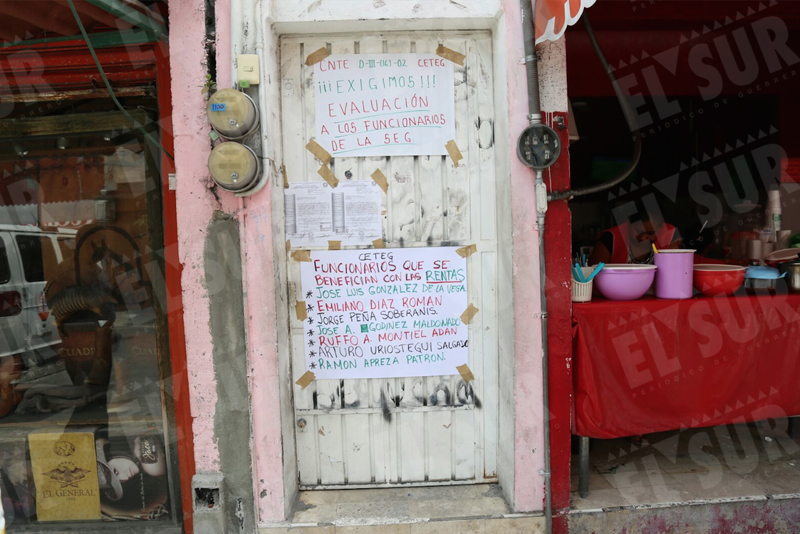 CNTE D-III-061-02. CETEG
¡¡¡EXIGIMOS!!!
EVALUACIÓN
A LOS FUNCIONARIOS
DE LA S.E.G.
CETEG
FUNCIONARIOS QUE SE
BENEFICIAN CON LAS RENTAS
* JOSE LUIS GONZALEZ DE LA VEGA
* EMILIANO DIAZ ROMAN
* JORGE PEÑA SOBERANIS
* JOSE A. GODINEZ MALDONADO
* RUFFO A. MONTIEL ADAN
* ARTURO URIOSTEGUI SALGADO
* RAMON APREZA PATRON
EL GENERAL
EL SUR